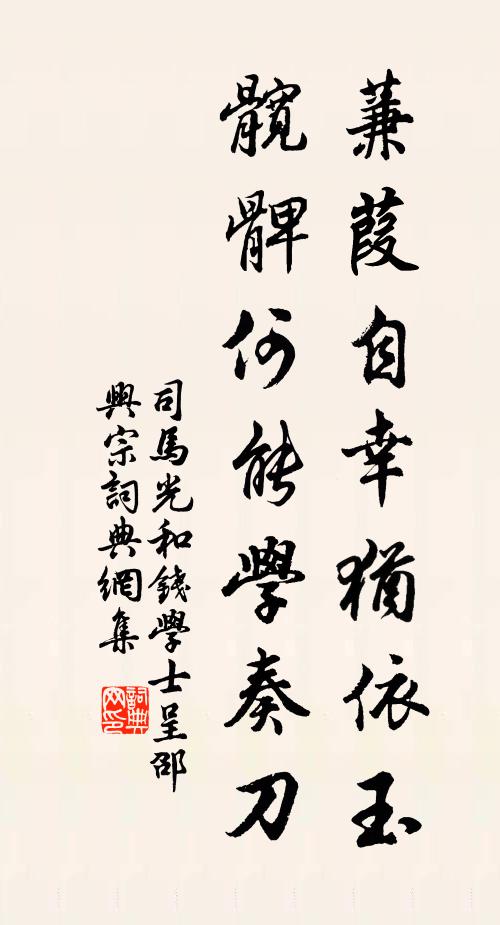 蒹葭自幸猶依玉
髖髀何能學奏刀
司馬光和錢學士呈邵
興宗詞典網集
詞典网印